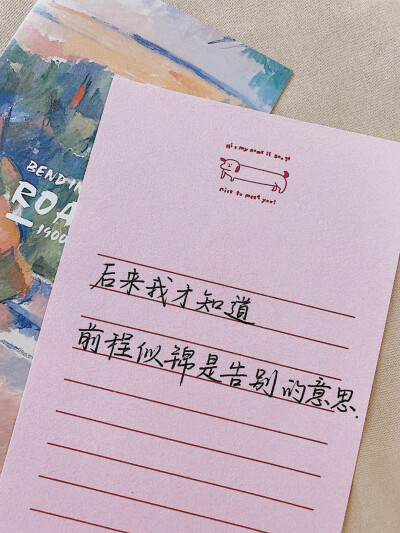 BEND IN
ROA
1900
Hi & my name is
nice to meet you!
后来我才知道
前程似锦是告别的意思.